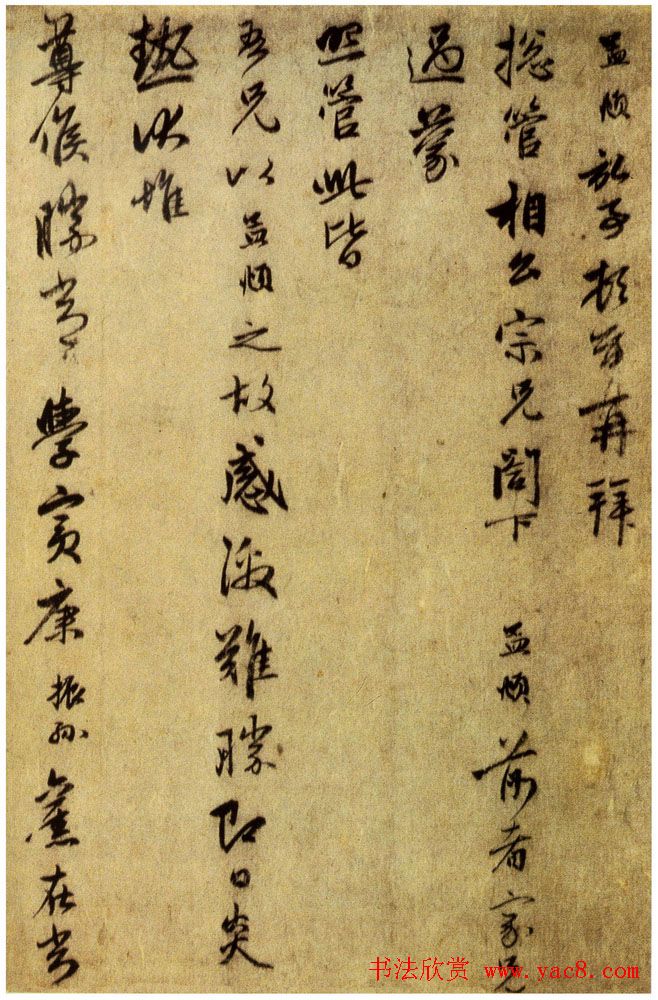 孟頫頓首再拜
揔管相公宗兄閣下 孟頫前者家兄
過蒙
照管此皆
吾兄以孟頫之故感激難勝即日炎
熱伏惟
尊候勝常學賓康振孫舊在
书法欣赏 www.yac8.com